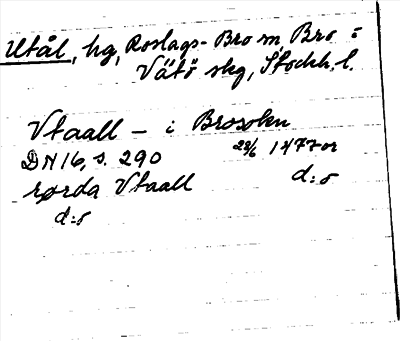 Utål, hg, Roslags-Bro sn, Bro o
Vätö skg, Stockh. l.
Vtaall - i Brosokn
DN 16, s. 290 23/6 1477 or
rørda Vtaall d:o
d:o